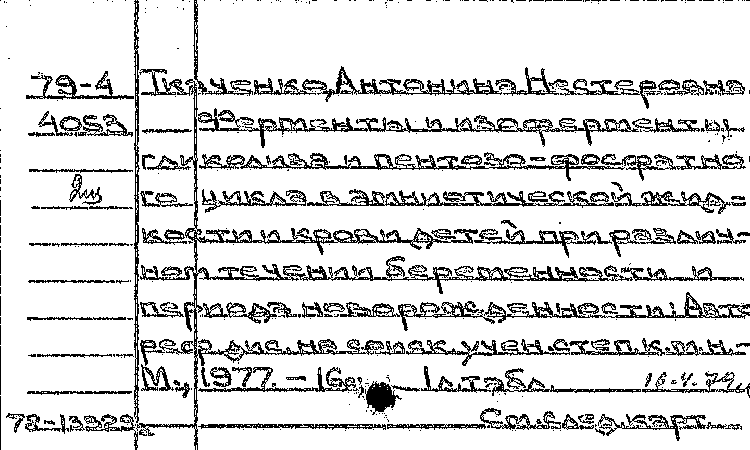 79-4 Ткаченко, Антонина Нестеровна.
4053 Ферменты и изоферменты
гликолиза и пентозо-фосфатно-
го цикла в амниотической жид-
кости и крови детей при различ-
ном течении беременности и
периода новорожденности: Авто-
реф. дис. на соиск. учен. степ. к.м.н.-
М., 1977. - 16с. 1 л. табл.
См. след. карт.